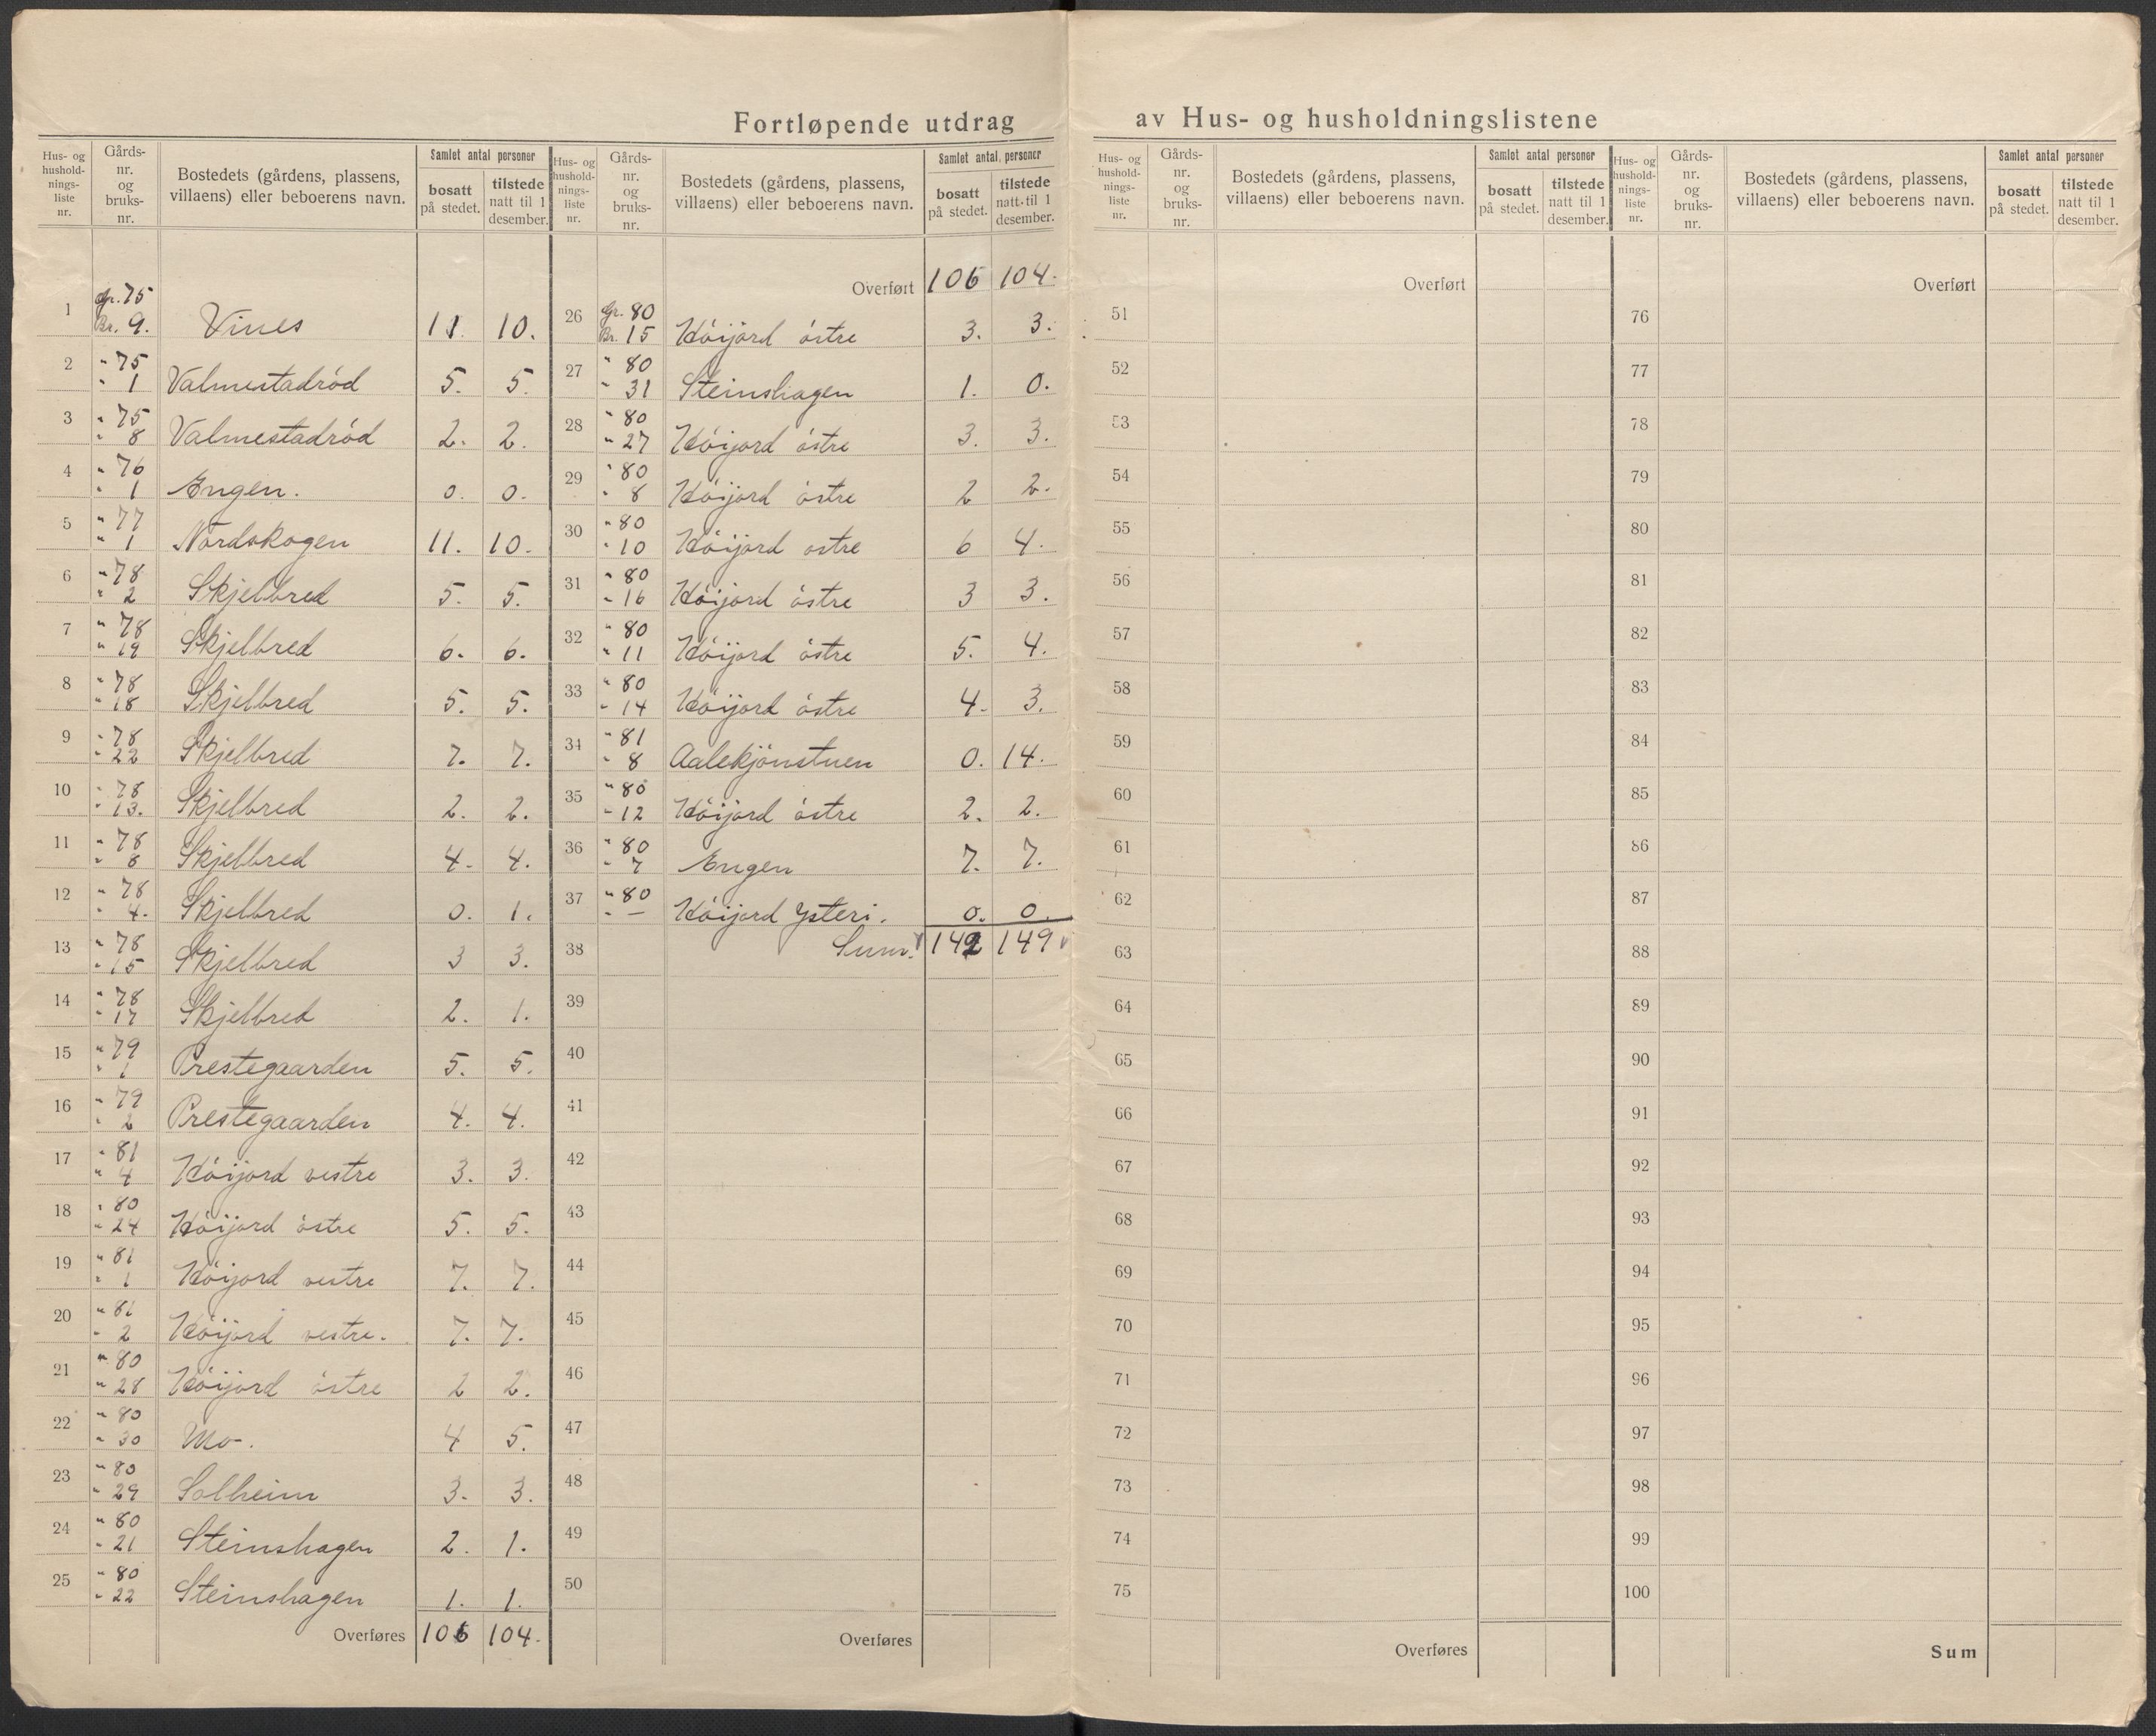 Fortløpende utdrag av Hus- og husholdningslistene
Hus- og hushold-nings-liste nr. | Gårds-nr. og bruks-nr. | Bostedets (gårdens, plassens, villaens) eller beboerens navn. | Samlet antal personer | bosatt på stedet. | tilstede natt til 1 desember.
1 Gr. 75 Br. 9. Vines 11. 10.
2 " 75 " 1 Valmestadröd 5. 5.
3 " 75 " 8 Valmestadröd 2. 2.
4 " 76 " 1 Engen. 0. 0.
5 " 77 " 1 Nordskogen 11. 10.
6 " 78 " 2 Skjelbred 5. 5.
7 " 78 " 19 Skjelbred 6. 6.
8 " 78 " 18 Skjelbred 5. 5.
9 " 78 " 22 Skjelbred 7. 7.
10 " 78 " 13. Skjelbred 2. 2.
11 " 78 " 8 Skjelbred 4. 4.
12 " 78 " 4. Skjelbred 0. 1.
13 " 78 " 15 Skjelbred 3 3.
14 " 78 " 17 Skjelbred 2. 1.
15 " 79 " 1 Prestegaarden 5. 5.
16 " 79 " 2 Prestegaarden 4. 4.
17 " 81 " 4 Höijord vestre 3. 3.
18 " 80 " 24 Höijord östre 5. 5.
19 " 81 " 1 Höijord vestre 7. 7.
20 " 81 " 2 Höijord vestre. 7. 7.
21 " 80 " 28 Höijord östre 2 2.
22 " 80 " 30 Mo. 4 5.
23 " 80 " 29 Solheim 3. 3.
24 " 80 " 21 Steinshagen 2. 1.
25 " 80 " 22 Steinshagen 1. 1.
Overføres 106 104.
Hus- og hushold-nings-liste nr. | Gårds-nr. og bruks-nr. | Bostedets (gårdens, plassens, villaens) eller beboerens navn. | Samlet antal personer | bosatt på stedet. | tilstede natt til 1 desember.
Overført 106 104.
26 Gr. 80 Br. 15 Höijord östre 3. 3.
27 " 80 " 31 Steinshagen 1. 0.
28 " 80 " 27 Höijord östre 3. 3.
29 " 80 " 8 Höijord östre 2 2.
30 " 80 " 10 Höijord ostre 6 4.
31 " 80 " 16 Höijord östre 3 3.
32 " 80 " 11 Höijord östre 5. 4.
33 " 80 " 14 Höijord östre 4. 3.
34 " 81 " 8 Aalekjönstuen 0. 14.
35 " 80 " 12 Höijord östre 2. 2.
36 " 80 " 7 Engen 7. 7.
37 " 80 " — Höijord Ysteri. 0. 0.
38 Sum. 142 149
39
40
41
42
43
44
45
46
47
48
49
50
Overføres
Hus- og hushold-nings-liste nr. | Gårds-nr. og bruks-nr. | Bostedets (gårdens, plassens, villaens) eller beboerens navn. | Samlet antal personer | bosatt på stedet. | tilstede natt til 1 desember.
Overført
51
52
53
54
55
56
57
58
59
60
61
62
63
64
65
66
67
68
69
70
71
72
73
74
75
Overføres
Hus- og hushold-nings-liste nr. | Gårds-nr. og bruks-nr. | Bostedets (gårdens, plassens, villaens) eller beboerens navn. | Samlet antal personer | bosatt på stedet. | tilstede natt til 1 desember.
Overført
76
77
78
79
80
81
82
83
84
85
86
87
88
89
90
91
92
93
94
95
96
97
98
99
100
Sum